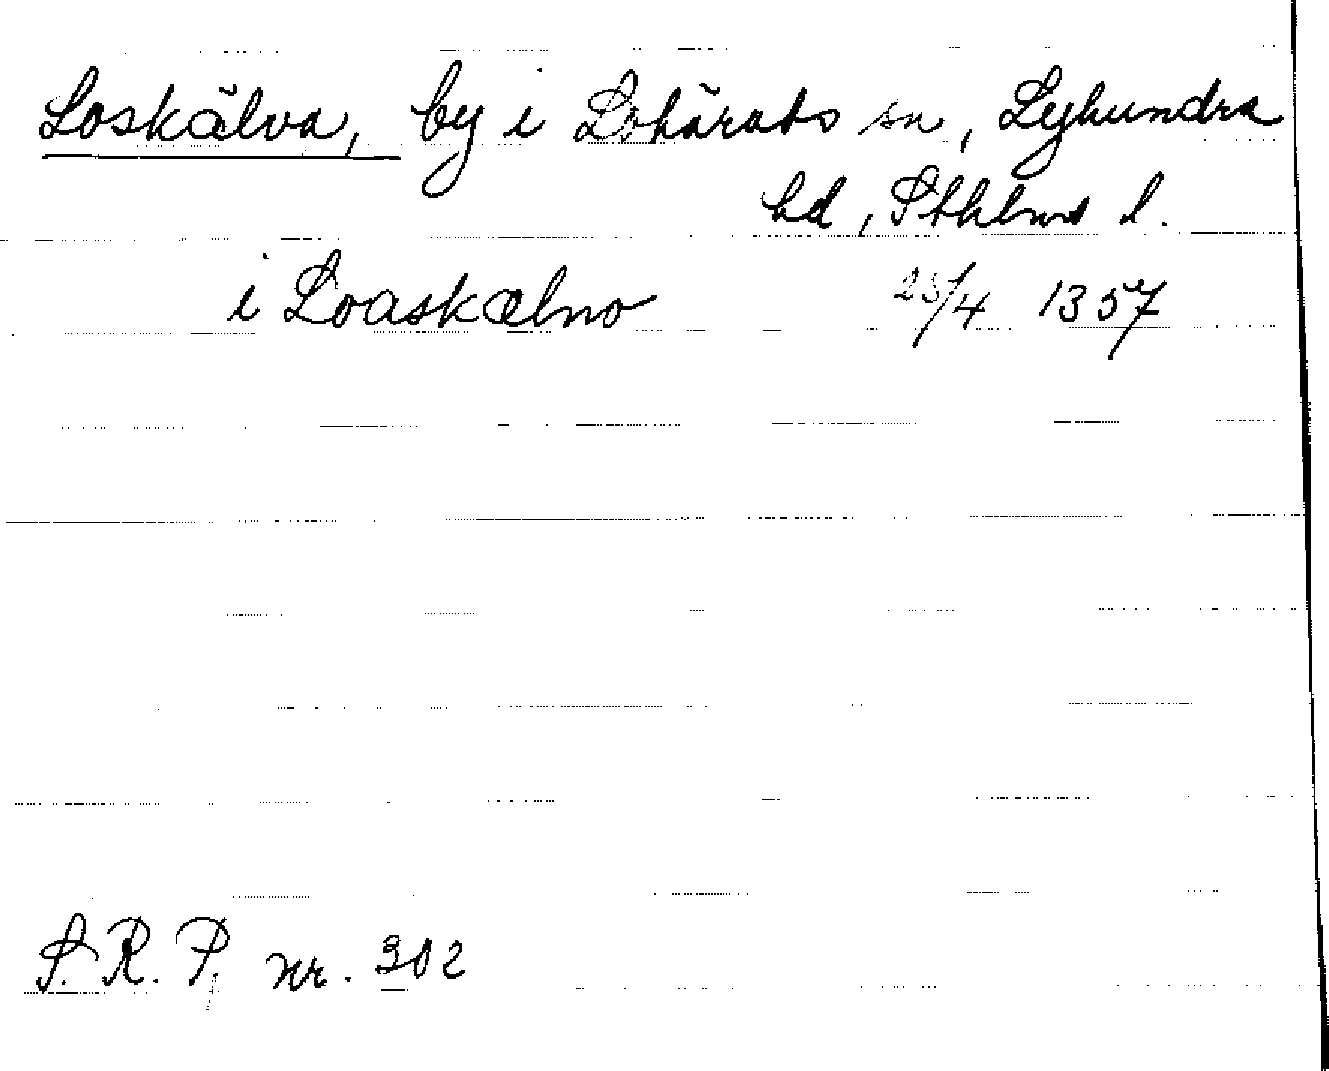 Loskälva, by i Lohärads sn, Lyhundra
hd, Sthlms l.
i Loaskælno 23/4 1357
S.R.P. nr. 302